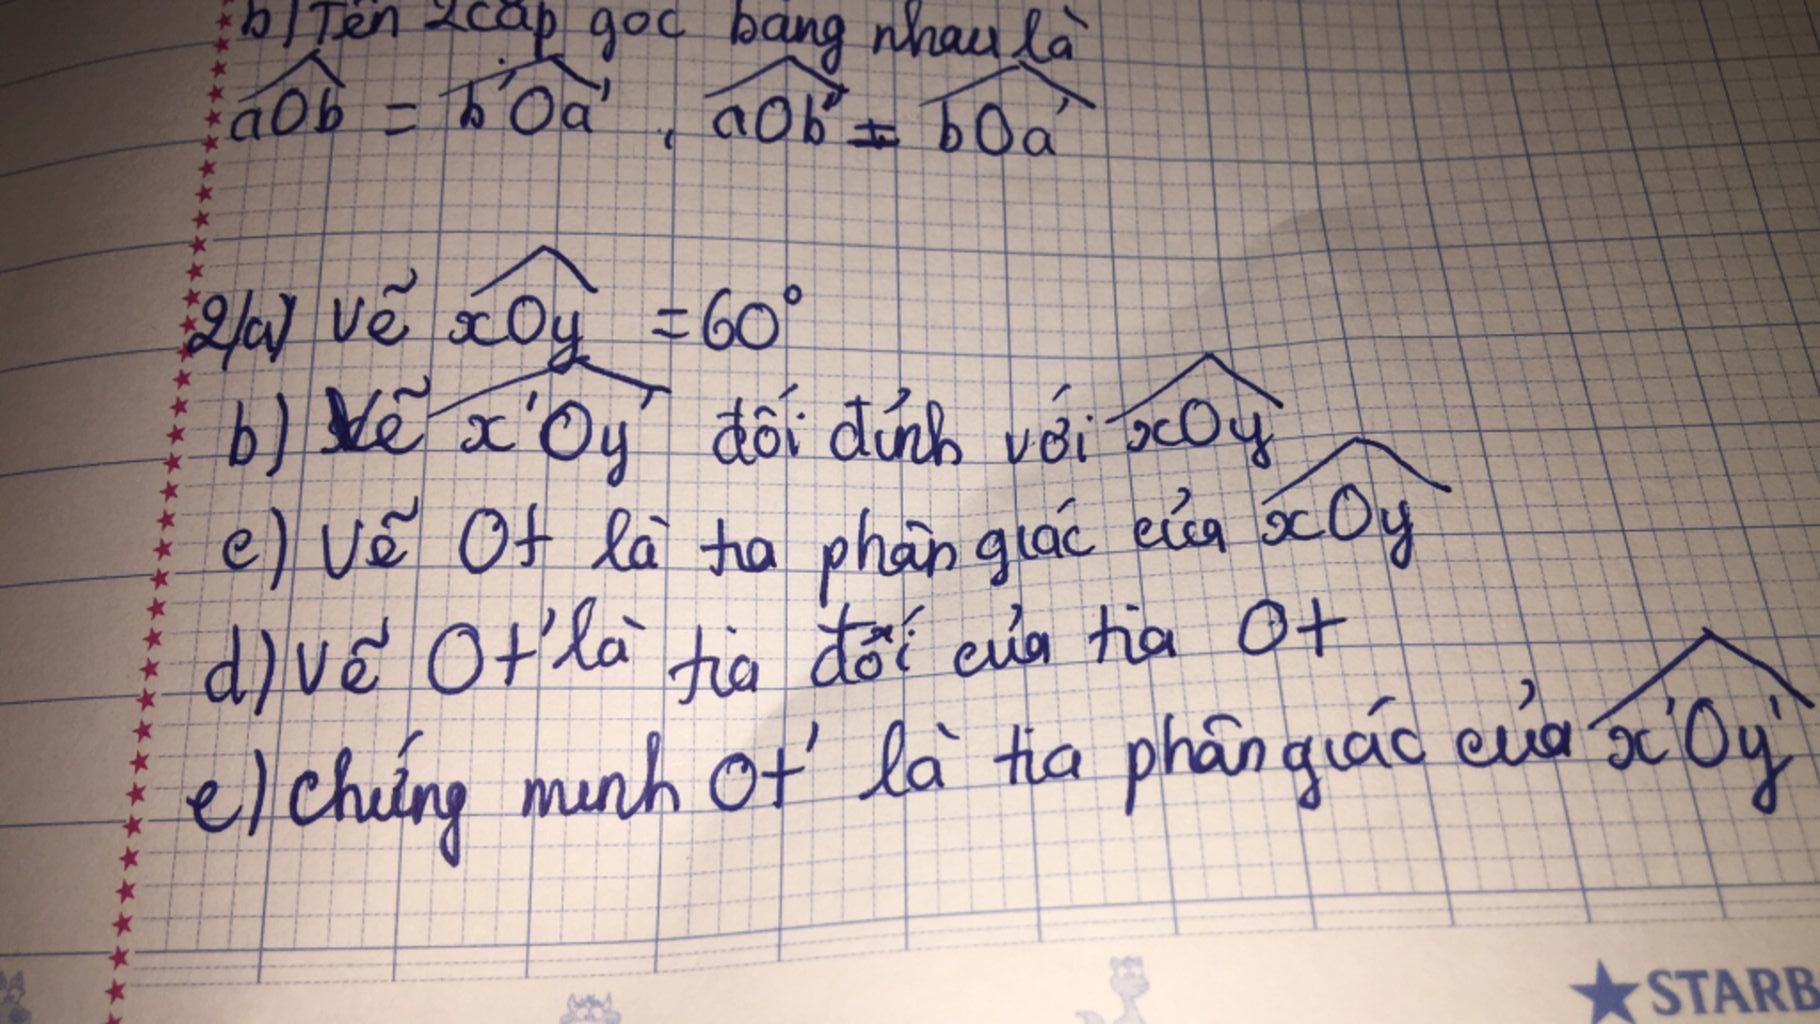 b) Tên 2 cặp góc bằng nhau là
aOb = b'Oa' , aOb' = bOa'
2/a) Vẽ xOy = 60°
b) Vẽ x'Oy' đối đỉnh với xOy
c) Vẽ Ot là tia phân giác của xOy
d) Vẽ Ot' là tia đối của tia Ot
e) Chứng minh Ot' là tia phân giác của x'Oy'
STARB